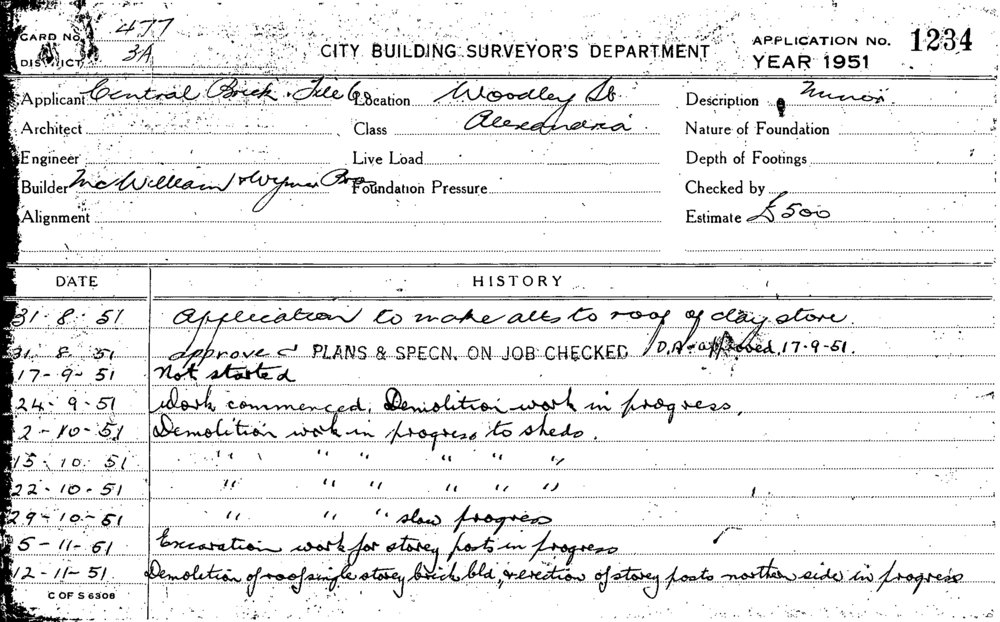 CARD No. 477
DISTRICT 3A
CITY BUILDING SURVEYOR'S DEPARTMENT
APPLICATION No. 1234
YEAR 1951
Applicant Central Brick & Tile Co Location Woodley St Description Minor
Architect Class Alexandria Nature of Foundation
Engineer Live Load Depth of Footings
Builder McWilliam & Wyman Bros Foundation Pressure Checked by
Alignment Estimate £500
DATE HISTORY
31-8-51 Application to make alts to roof of clay store.
31 8 51 approved PLANS & SPECN. ON JOB CHECKED D.A. approved 17-9-51.
17-9-51 Not started
24-9-51 Work commenced. Demolition work in progress.
2-10-51 Demolition work in progress to sheds.
15.10.51 " " " " " "
22-10-51 " " " " " "
29-10-51 " " " slow progress
5-11-51 Excavation work for storey posts in progress
12-11-51 Demolition of roof single storey brick bld, & erection of storey posts northern side in progress
C OF S 6308